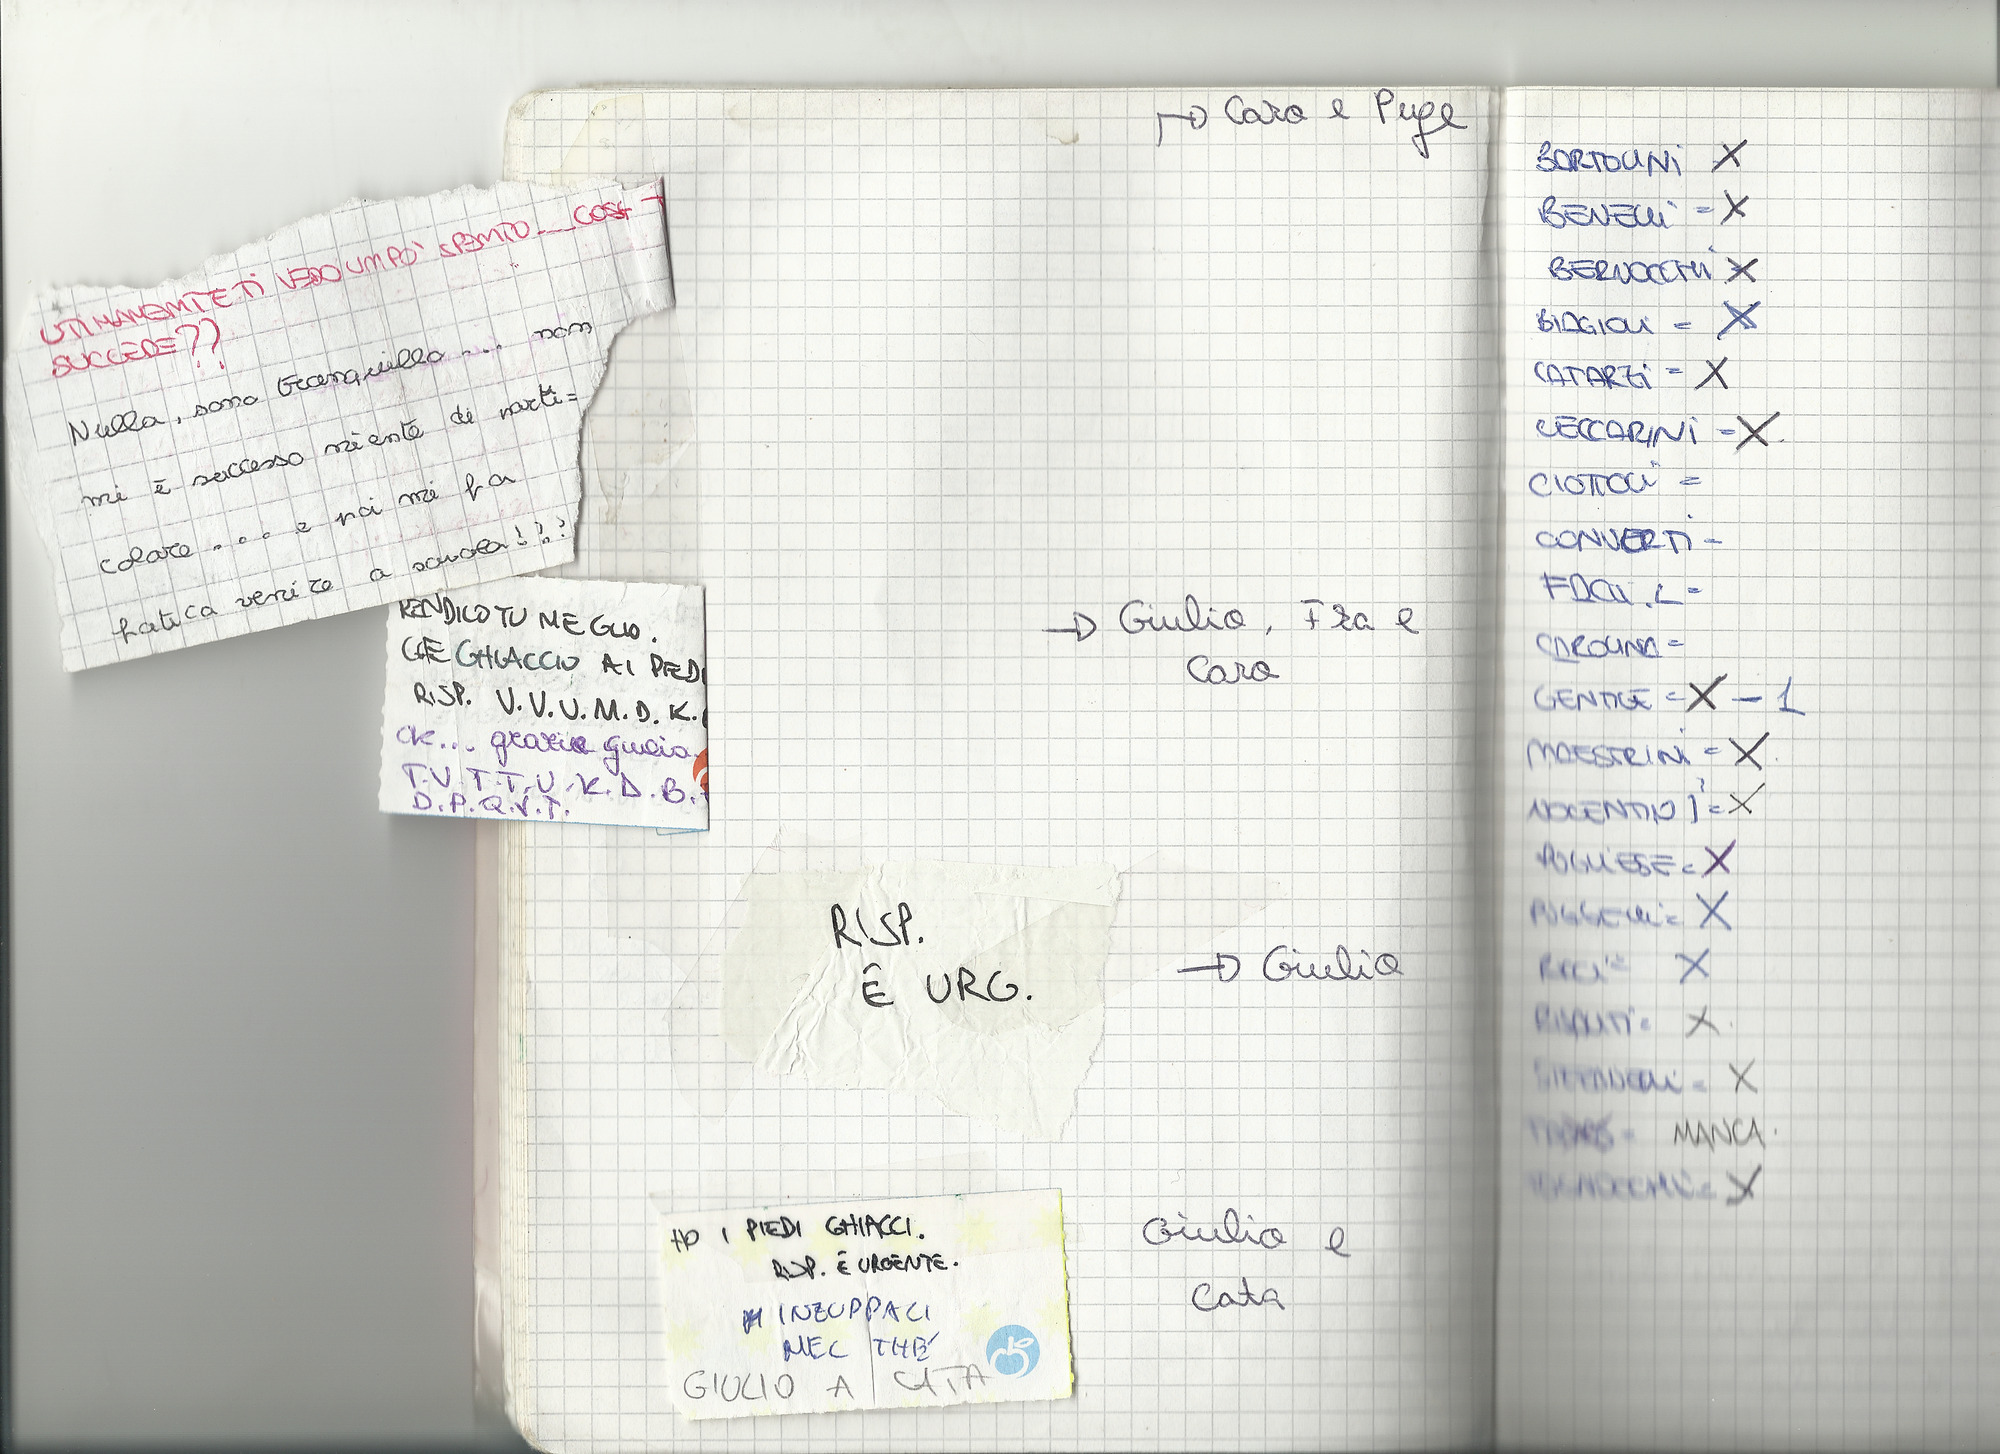 → Caro e Puge
UTIMAMEMTE TI VEDO UMPO' SPEMTO...COSA
SUCCEDE??
Nulla, sono tranquilla... non
mi è successo niente di parti=
colare .... e poi mi fa
fatica venire a scuola!!?
RENDILO TU MEGLIO.
CE GHIACCIO AI PIEDI
RISP. V.V.U.M.D.K.
OK... grazie giulio.
T.V.T.T.U.K.D.B.
D.P.Q.V.T.
→ Giulio, Fra e
Caro
RISP.
È URG.
→ Giulio
HO I PIEDI GHIACCI.
RISP. È URGENTE.
INZUPPACI
NEL THÈ
GIULIO A CATA
Giulio e
Cata
BARTOLINI X
BENELLI = X
BERNOCCHI X
BIAGIOLI = X
CATARZI = X
CECCARINI = X
CIOTTOLI =
CONVERTI =
FACLI.L =
CAROLINA =
GENTILE = X - 1
MAESTRINI = X
NOCENTINI = X
PUGLIESE = X
POGGELLI = X
RICCI = X
RISALITI = X
STEFANELLI = X
MANCA.
TOGNOCCHI = X